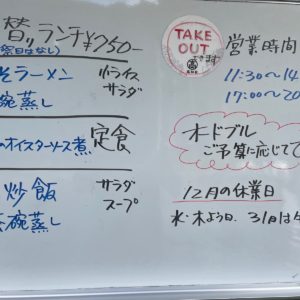 替りランチ¥750-
祭日はなし)
そラーメン 小ライス
サラダ
碗蒸し
のオイスターソース煮 定食
炒飯 サラダ
スープ
碗蒸し
TAKE
OUT
できます
営業時間
11:30〜14
17:00〜20
オードブル
ご予算に応じて
12月の休業日
水・木よう日、31日は